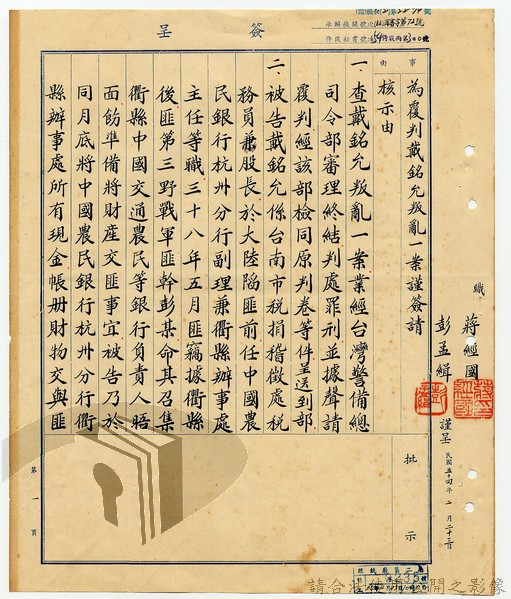 簽呈
承辦機關號次
侍從秘書號次
事由
為覆判戴銘允叛亂一案謹簽請
核示由
職 蔣經國
彭孟緝 謹呈
民國五十四年二月二十三日
一、查戴銘允叛亂一案業經台灣警備總
司令部審理終結判處罪刑並據聲請
覆判經該部檢同原判卷等件呈送到部
二、被告戴銘允係台南市稅捐稽徵處稅
務員兼股長於大陸陷匪前任中國農
民銀行杭州分行副理兼衢縣辦事處
主任等職三十八年五月匪竊據衢縣
後匪第三野戰軍匪幹彭某命其召集
衢縣中國交通農民等銀行負責人晤
面飭準備將財產交匪事宜被告乃於
同月底將中國農民銀行杭州分行衢
縣辦事處所有現金帳册財物交與匪
批示
第一頁
請合法使用公開之影像